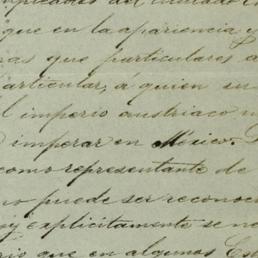 que en la apariencia y
ras que particulares a
articular, á quien su
l imperio austriaco
imperar en México.
como representante de
no puede ser reconoc
y explicitamente se ne
rio que en algunos Est